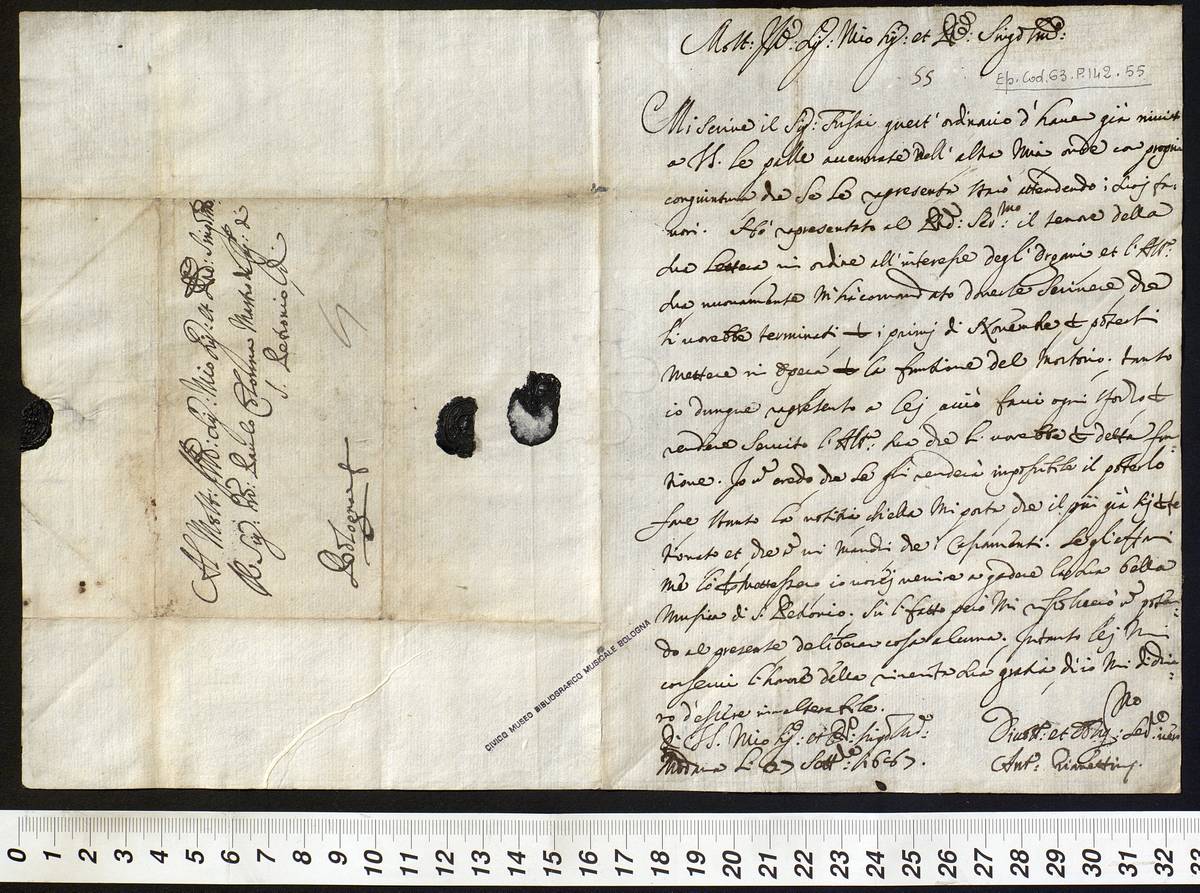 Molt: Ill: Sig: Mio Sig: et Pad: Sing.mo
55
Ep. Cod. 63. P. 142. 55
Mi Scrive il Sig: quest' ordinario d' haver già
a VS. le palle accennate nell' altra Mia onde con propria
congiuntura che Se le rapresenta Starò attendendo i Suoi fa-
vori. Hò rapresentato al Pad: Ser.mo il tenore della
Sua Lettera in ordine all' interesse degl' Organi et l' Alt:
Sua nuovamente M' hà comandato doverle Scrivere che
li vorebbe terminati per i primj di Novembre per poterli
Mettere in Opera per la funtione del Mortorio. tanto
io dunque rapresento a lej acciò facci ogni Sforzo per
rendere Servito l' Alt: Sua che li vorebbe per detta fon-
tione. Io credo che Se gli renderà impossibile il poterlo
fare Stante la notitia ch' ella Mi porta che il più già Sij
tionato et che mi manchi che i Casamenti. Se gl' affari
me lo permettessero io vorej venire a godere la Sua bella
Musica di S. Petronio. Sù l' fatto però Mi non poten-
do al presente deliberar cosa alcuna. Intanto lej Mi
conservi l' honore della riverita Sua gratia, ch' io Mi dichia-
ro d' essere inalterabile.
Di VS. Mio Sig: et Pad: Sing.mo
Modena Li 27 Sett: 1687.
Divot: et Obblig: Ser.re vero
Ant: Giannettini.
Al Molt: Ill: Sig: Mio Sig: et Pad: Sing.mo
Il Sig: Gio: Paulo Colonna Mastro di Cap: di
S. Petronio di
Bologna
CIVICO MUSEO BIBLIOGRAFICO MUSICALE BOLOGNA
0 1 2 3 4 5 6 7 8 9 10 11 12 13 14 15 16 17 18 19 20 21 22 23 24 25 26 27 28 29 30 31 32